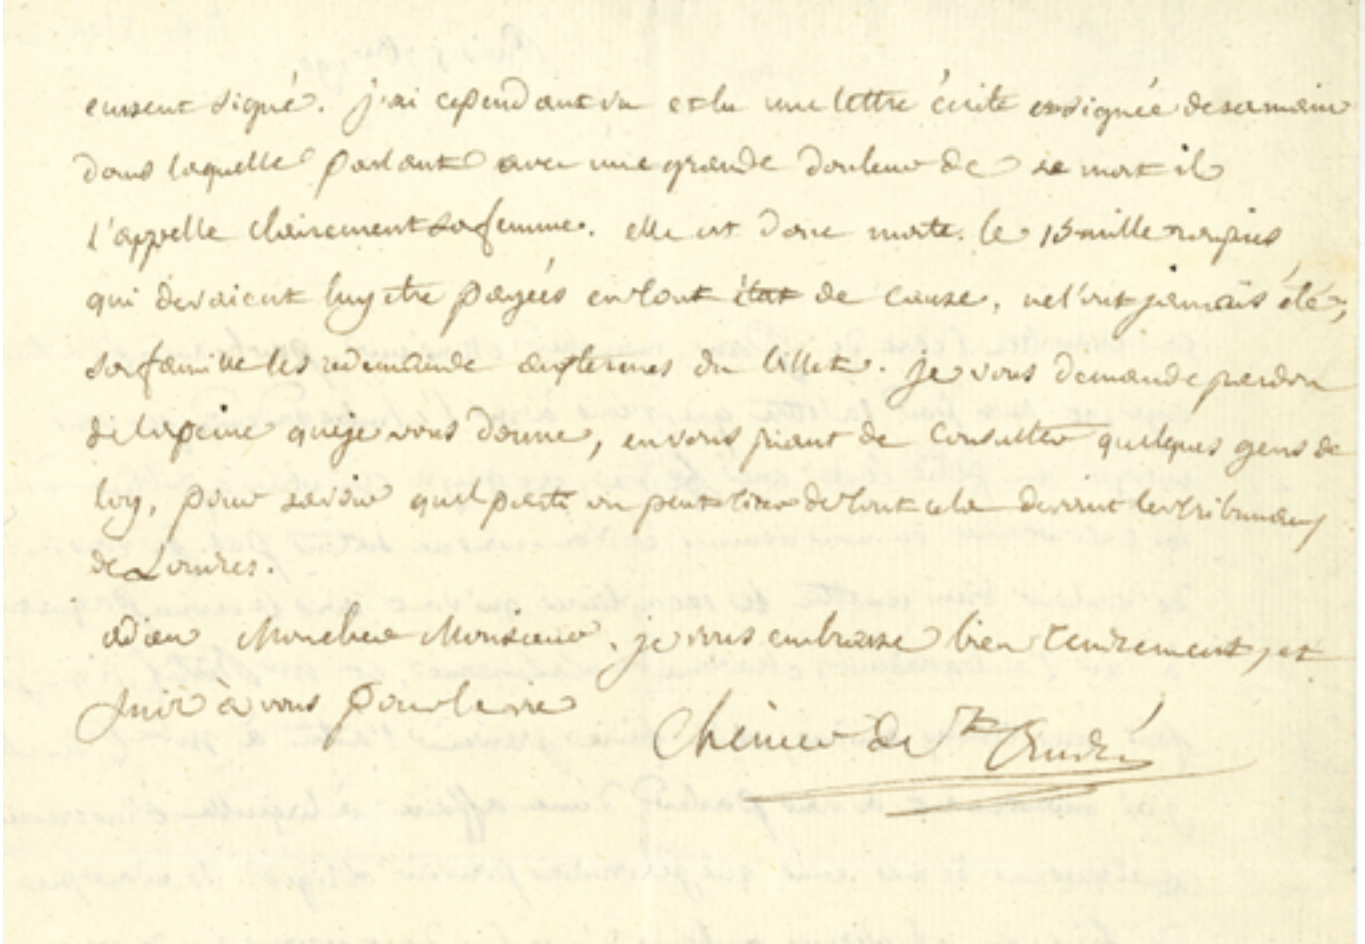 eussent signé. j'ai cependant vu et lu une lettre écrite et signée de sa main
dans laquelle parlant avec une grande douleur de sa mort il
l'appelle clairement sa femme. elle est donc morte. le 15 mille roupies
qui devaient luy être payées en tout état de cause, ne l'ont jamais été,
sa famille les redemande aux termes du billet. je vous demande pardon
de la peine que je vous donne, en vous priant de consulter quelques gens de
loy, pour savoir quel parti on peut tirer de tout cela devant les tribunaux
de Londres.
adieu Mon cher Monsieur. je vous embrasse bien tendrement, et
suis à vous pour la vie
Chénier de St André